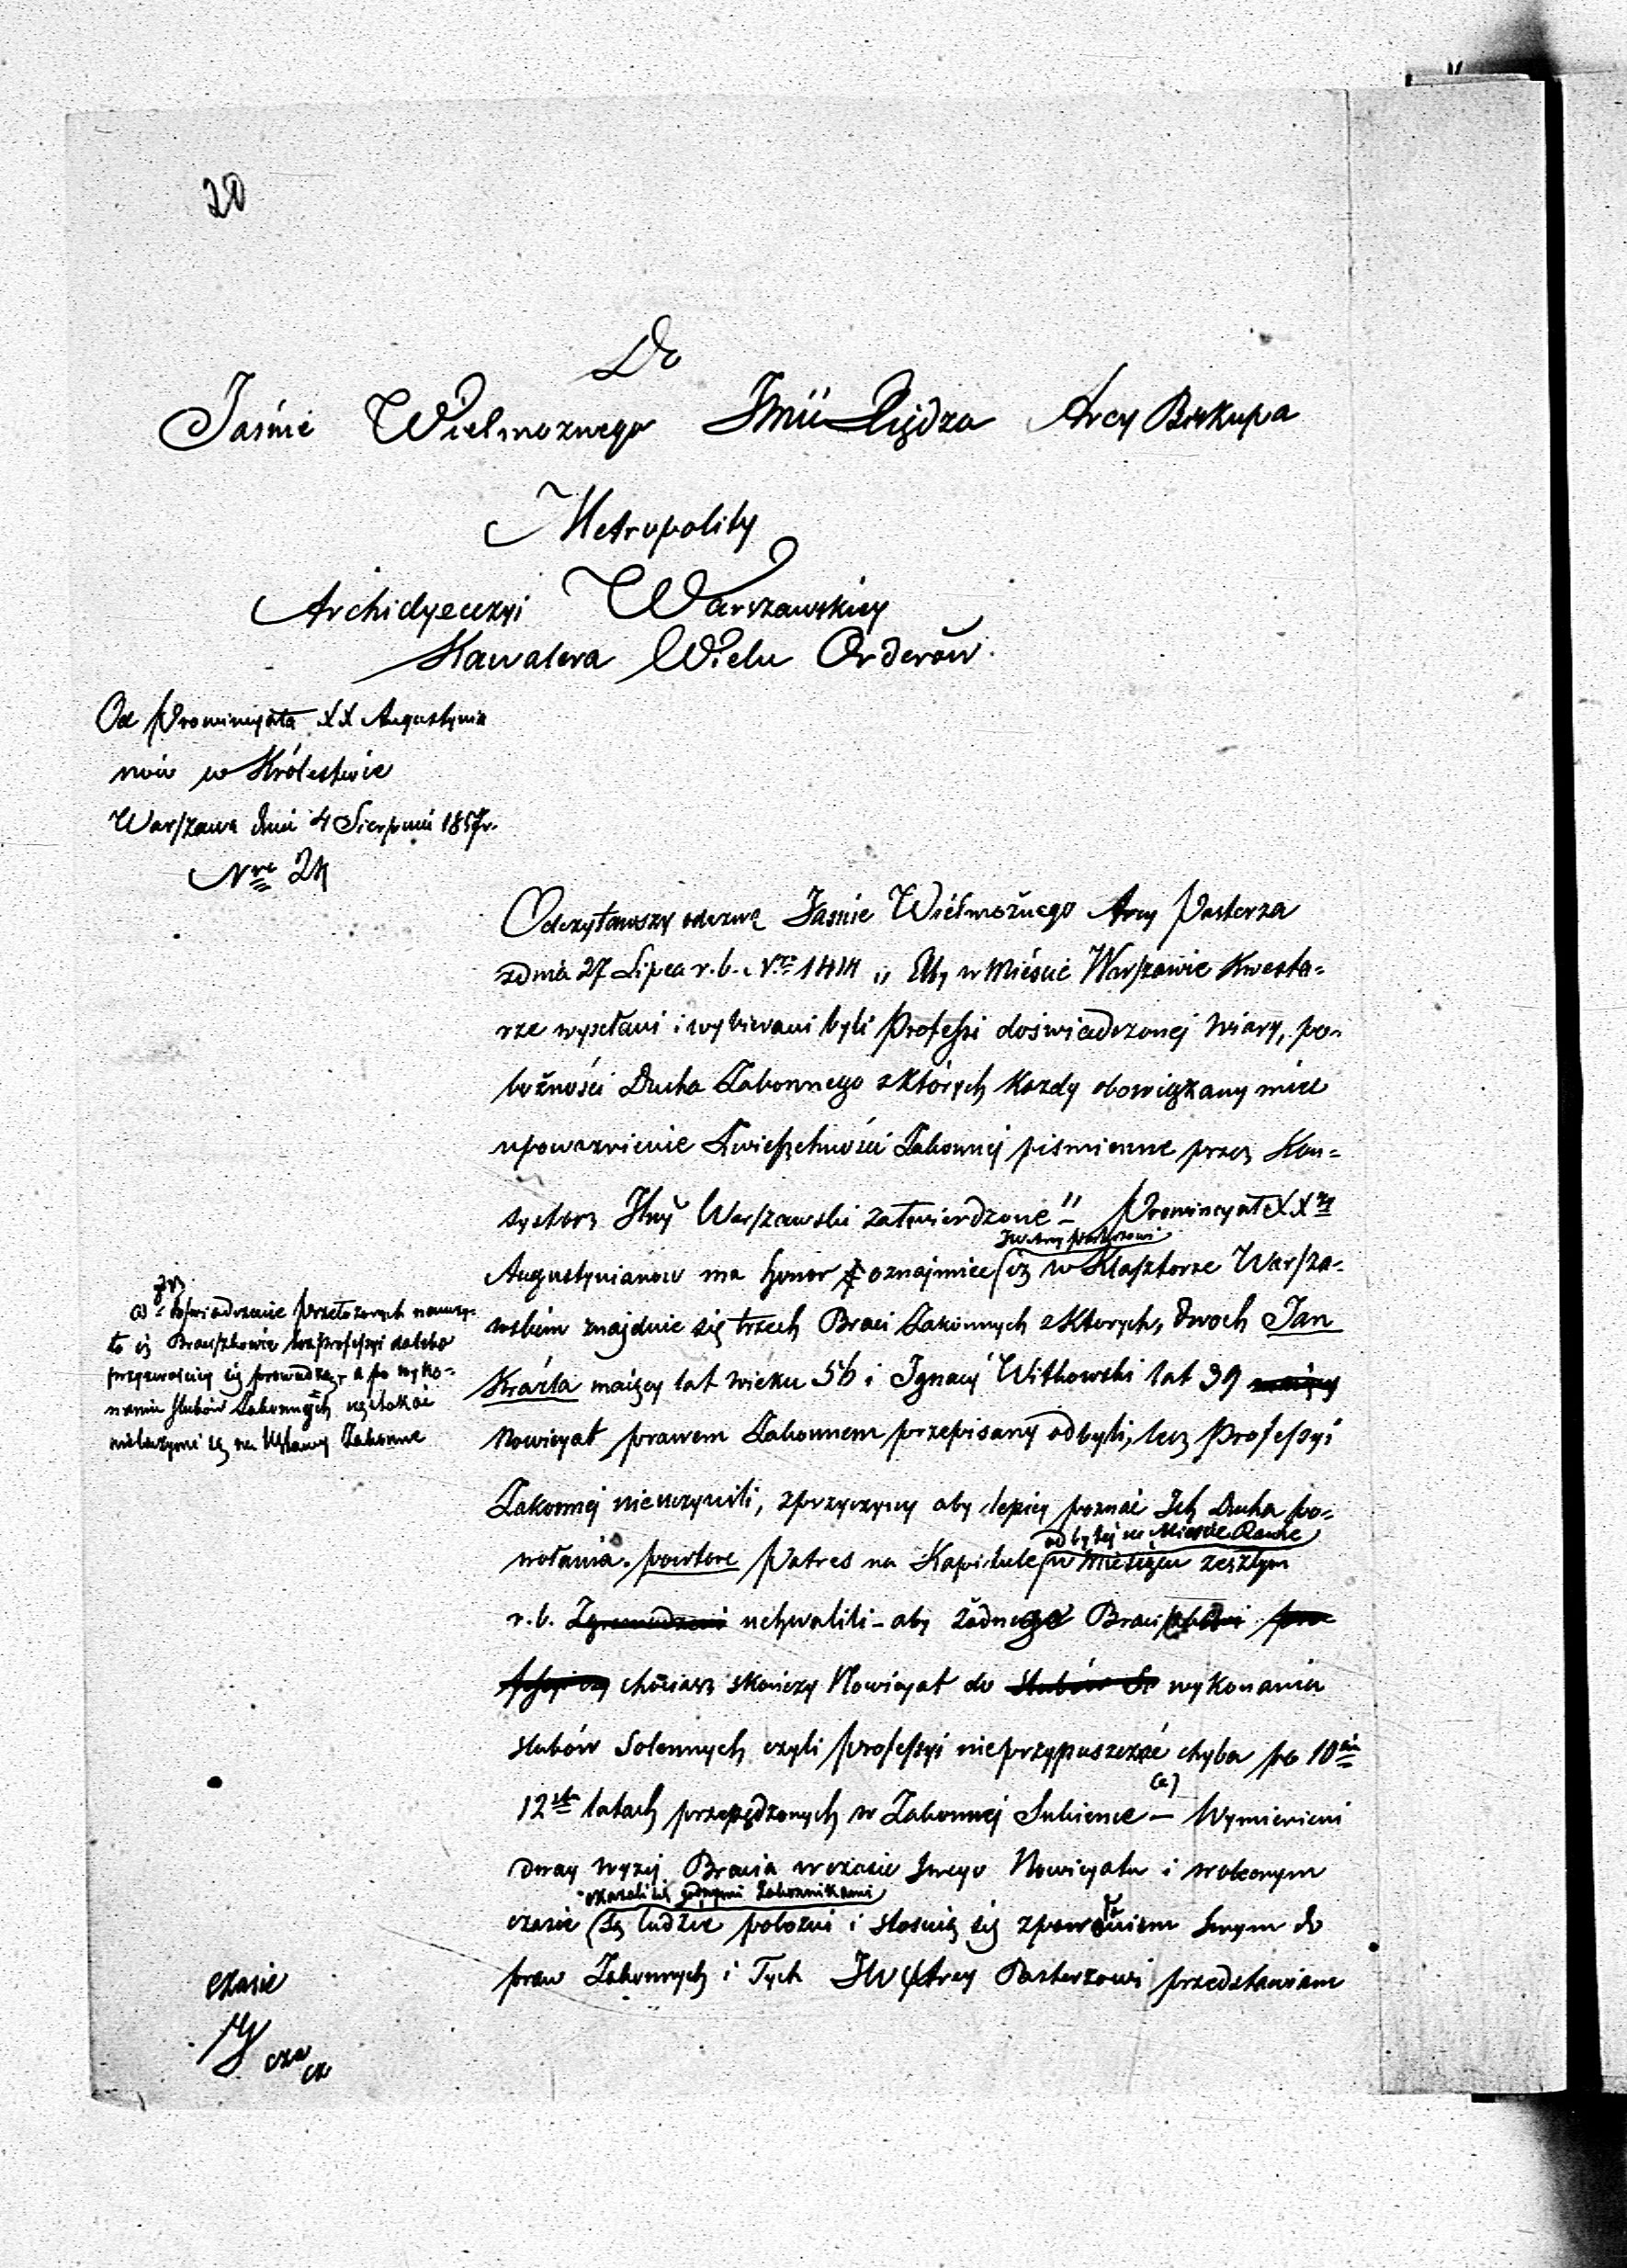 20
Do
Jaśnie Wielmoznego Jmü Xiędza Arcy Biskupa
Metropolity
Archidyecezyi Warszawskiey
Kawalera Wielu Orderów.
Od Prowincyała XX Augustynia
nów w Królestwie
Warszawa dnia 4 Sierpnia 1857r.
Nro 24
Odczytawszy odezwę Jasnie Wielmożnego Arcy Pasterza
zdnia 27 Lipca r.b. Nro 1414 „ Aby w Mieście Warszawie Kwesta=
rze wysełani i wybierani byli Professi doświadczonej wiary, po=
bożności Ducha Zakonnego z których każdy obowiązany mieć
upoważnienie Zwierzchności Zakonnej piśmienne przez Kon=
systorz Jlny Warszawski zatwierdzone" – Prowincyał XX
JW Arcy Pasterzowi
Augustynianów ma honor oznajmić iż w Klasztorze Warsza=
wskim znajduie się trzech Braci Zakonnych z których, dwoch Jan
Skarła maiący lat wieku 56 i Ignacy Witkowski lat 39 maiący
Nowicyat prawem Zakonnem przepisany odbyli, lecz Professyi
Zakonnej nieuczynili, zprzyczyny aby lepiey poznać Ich Ducha po=
odbytej w Mieście Rawie
wołania. powtore Patres na Kapitule w Miesiącu zeszłym
r.b. Zgromadzeni uchwalili – aby żadnego Braciszka pro
fessyi chociarz skończy Nowicyat do slubów wykonania
slubów Solennych czyli professyi nieprzypuszczać chyba po 10
(a)
12stu latach przepędzonych w Zakonnej Sukience – Wymienieni
dway wyzej Bracia wczasie swego Nowicyatu i wobecnym
okazali się godnymi Zakonnikami
czasie są ludzie pobożni i stosuią się zpowołaniem swym do
praw Zakonnych i Tych JW Arcy Pasterzowi przedstawiam
(a) doświadczenie Przełożonych nauczy=
ło iż Braciszkowie bez Professyi daleko
przyzwoiciey się prowadzą, a po wyko=
naniu slubów Zakonnych
nie na Ustawy Zakonne
czasie
cza
cz